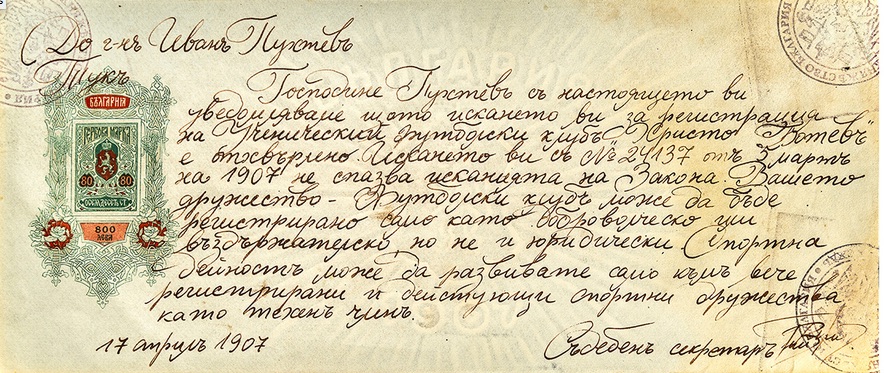 До г-нъ Иванъ Пухтевъ
Тукъ
Господине Пухтевъ съ настоящето ви
уведомляваме щото искането ви за регистрация
на Ученически футболски клубъ „Христо Ботевъ“
е отхвърлено. Искането ви съ № 24137 отъ 5 мартъ
на 1907 не спазва исканията на Закона. Вашето
дружество - Футболски клубъ може да бъде
регистрирано само като доброворческо или
въздържателско но не и юридически. Спортна
дейность може да развивате само към вече
регистрирани и действующи спортни дружества
като техен член.
17 априлъ 1907
Съдебенъ секретаръ
БЪЛГАРИЯ
ГЕРБОВА МАРКА
80 80
800